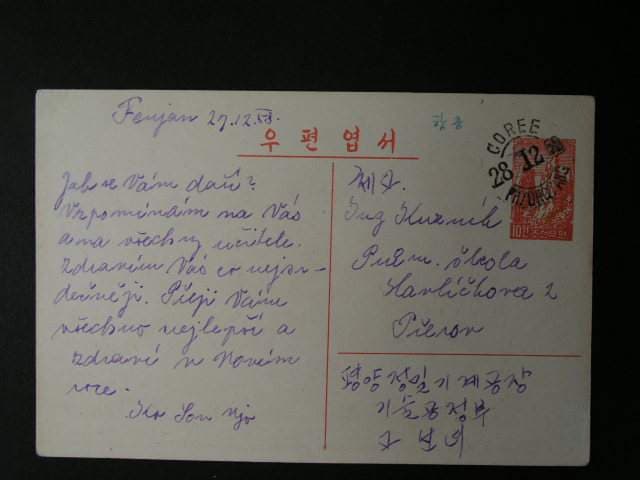 Fenjan 27.12.58.
우편엽서
함흥
COREE
28 12
PYONGYANG
10전
Jak se Vám daří?
Vzpomínám na Vás
a na všechny učitele.
Zdravím Vás co nejsr-
dečněji. Přeji Vám
všechno nejlepší a
zdraví v Novém
roce.
체코
Ing Kuzník
Prům. škola
Havlíčkova 2
Přerov
평양 정밀기계공장
기술공정부